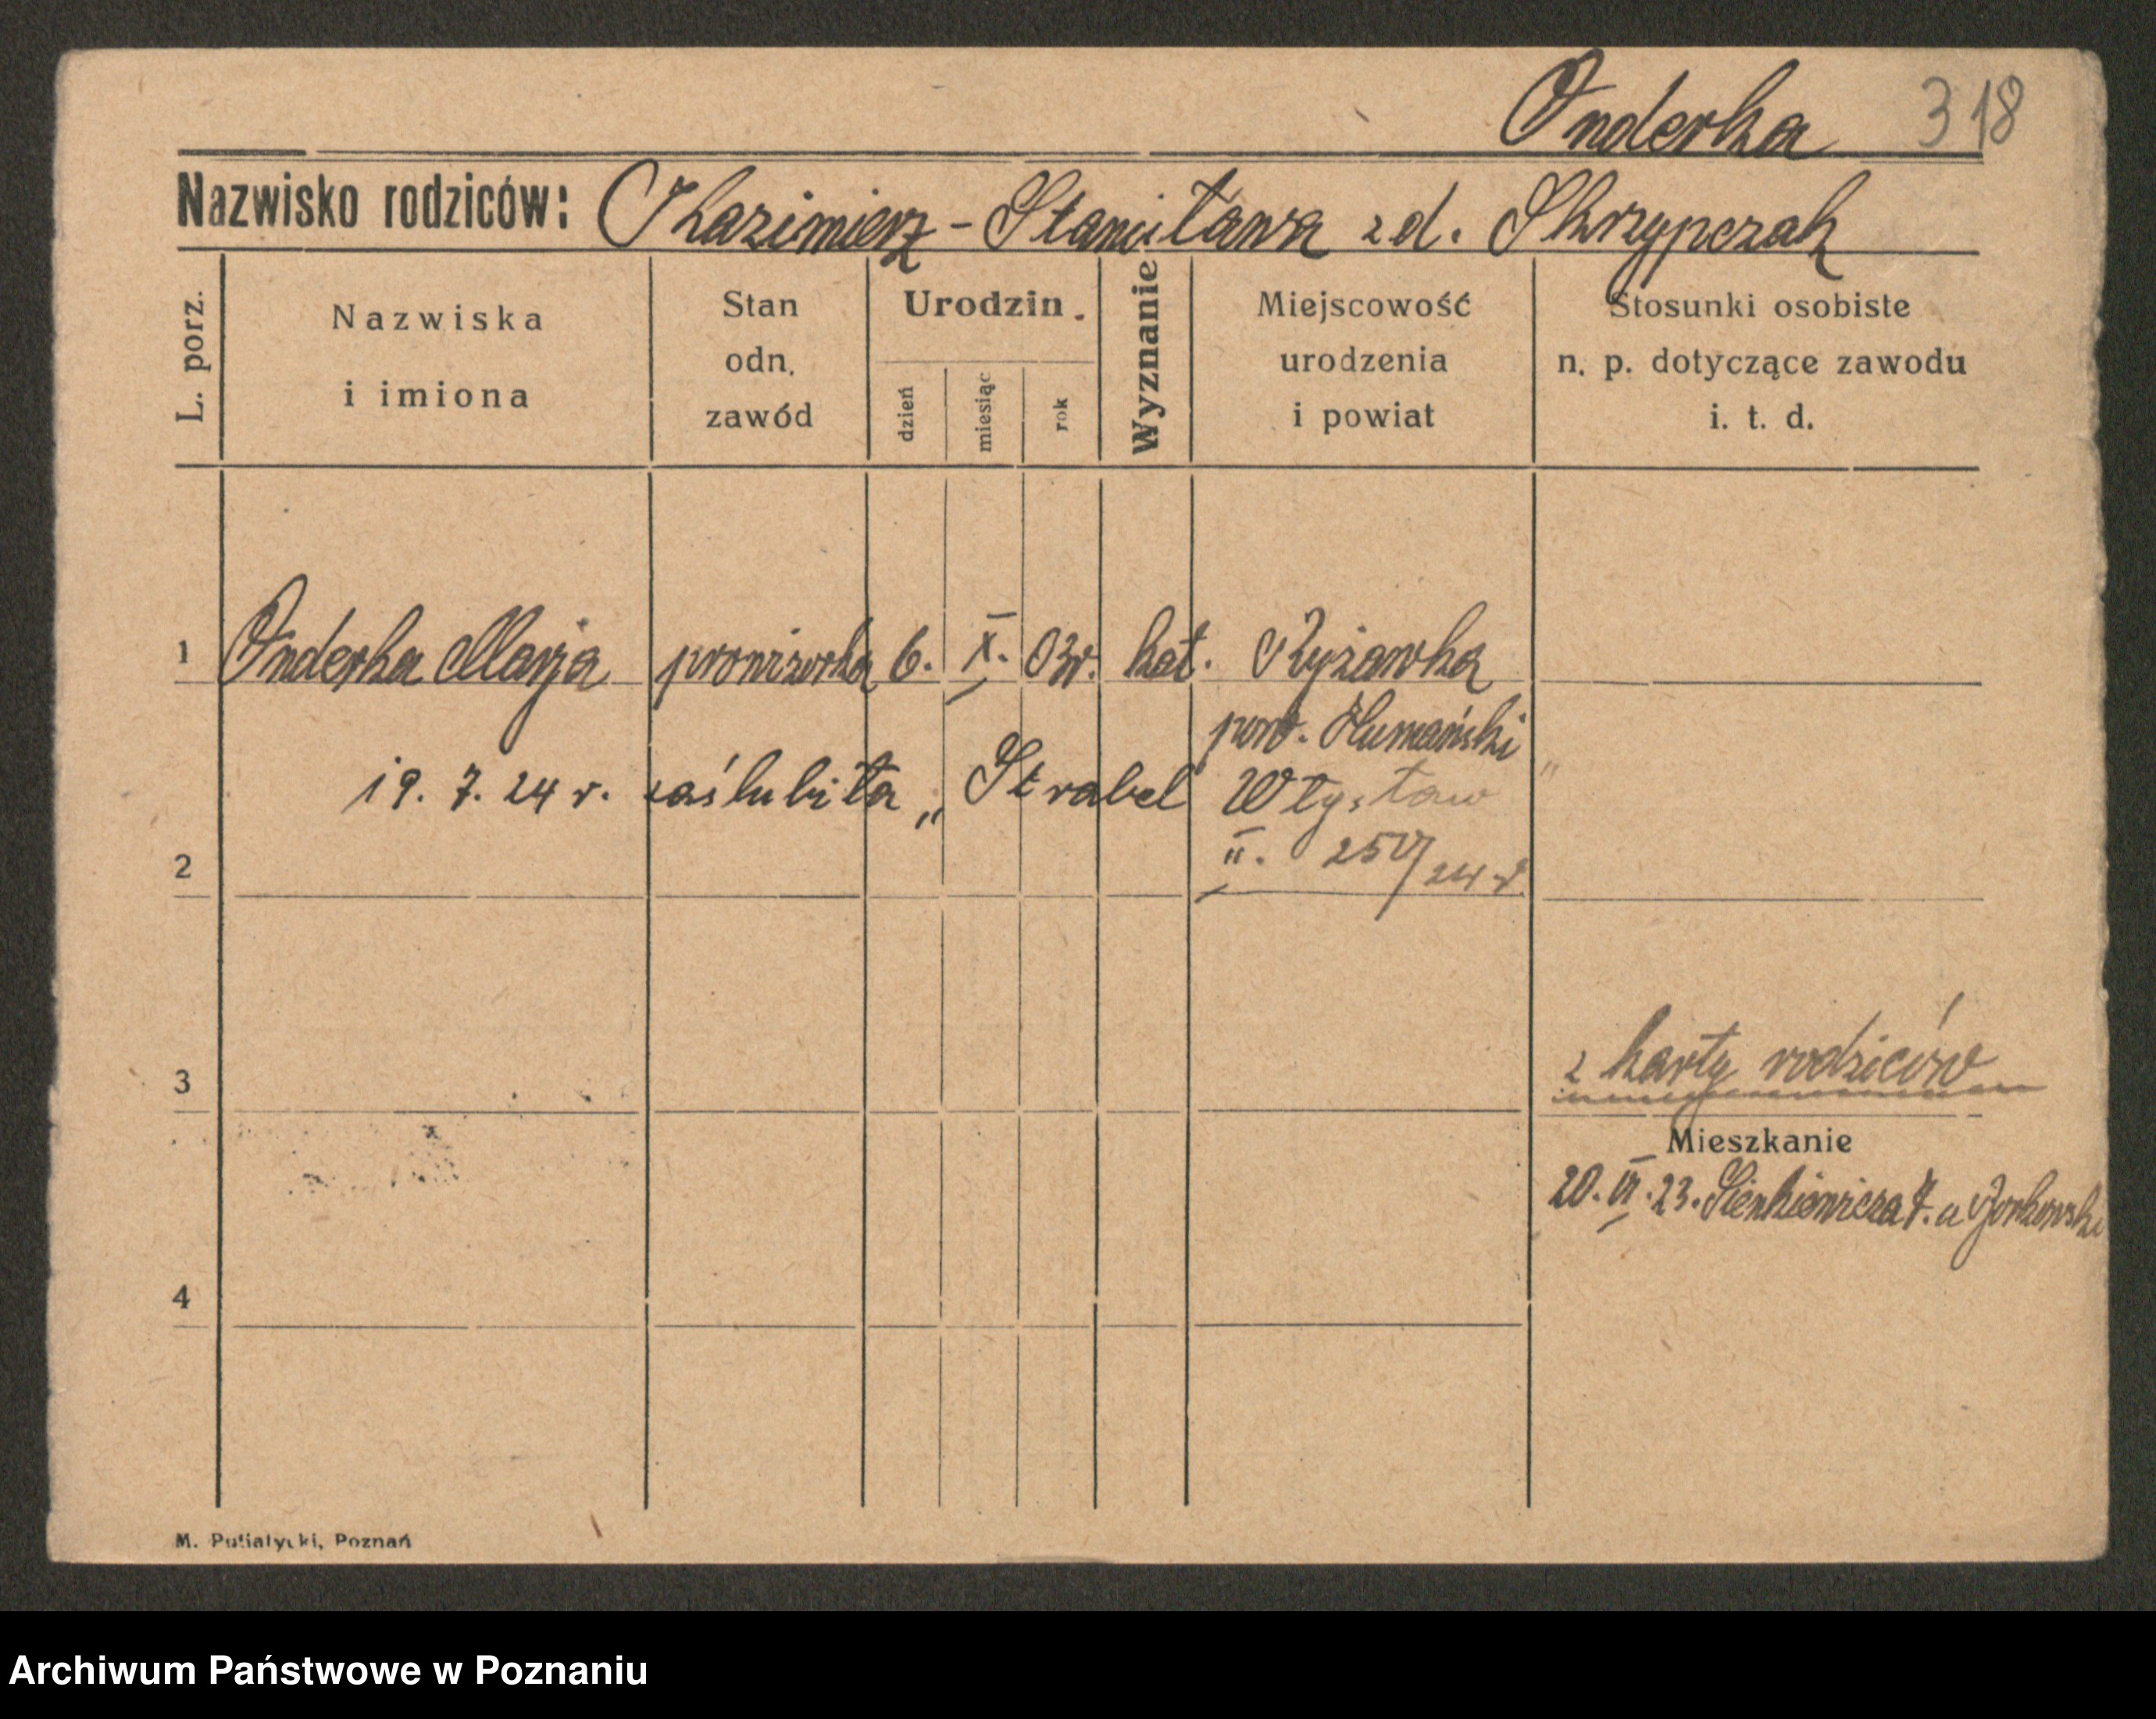 Onderka 318
Nazwisko rodziców: Kazimierz - Stanisława z d. Skrzypczak
L. porz.
Nazwiska
i imiona
Stan
odn.
zawód
Urodzin.
dzień
miesiąc
rok
Wyznanie
Miejscowość
urodzenia
i powiat
Stosunki osobiste
n. p. dotyczące zawodu
i. t. d.
1 Onderka Marja 6. X. 03r. kat. Ryżawka
pow. Humański
19. 7. 24 r. zaślubiła „ Strabel Włysław
2 II. 25
24 r.
3 z karty rodziców
Mieszkanie
20. VI. 23. Sienkiewicza 7. u
4
M. Putiatycki, Poznań
Archiwum Państwowe w Poznaniu